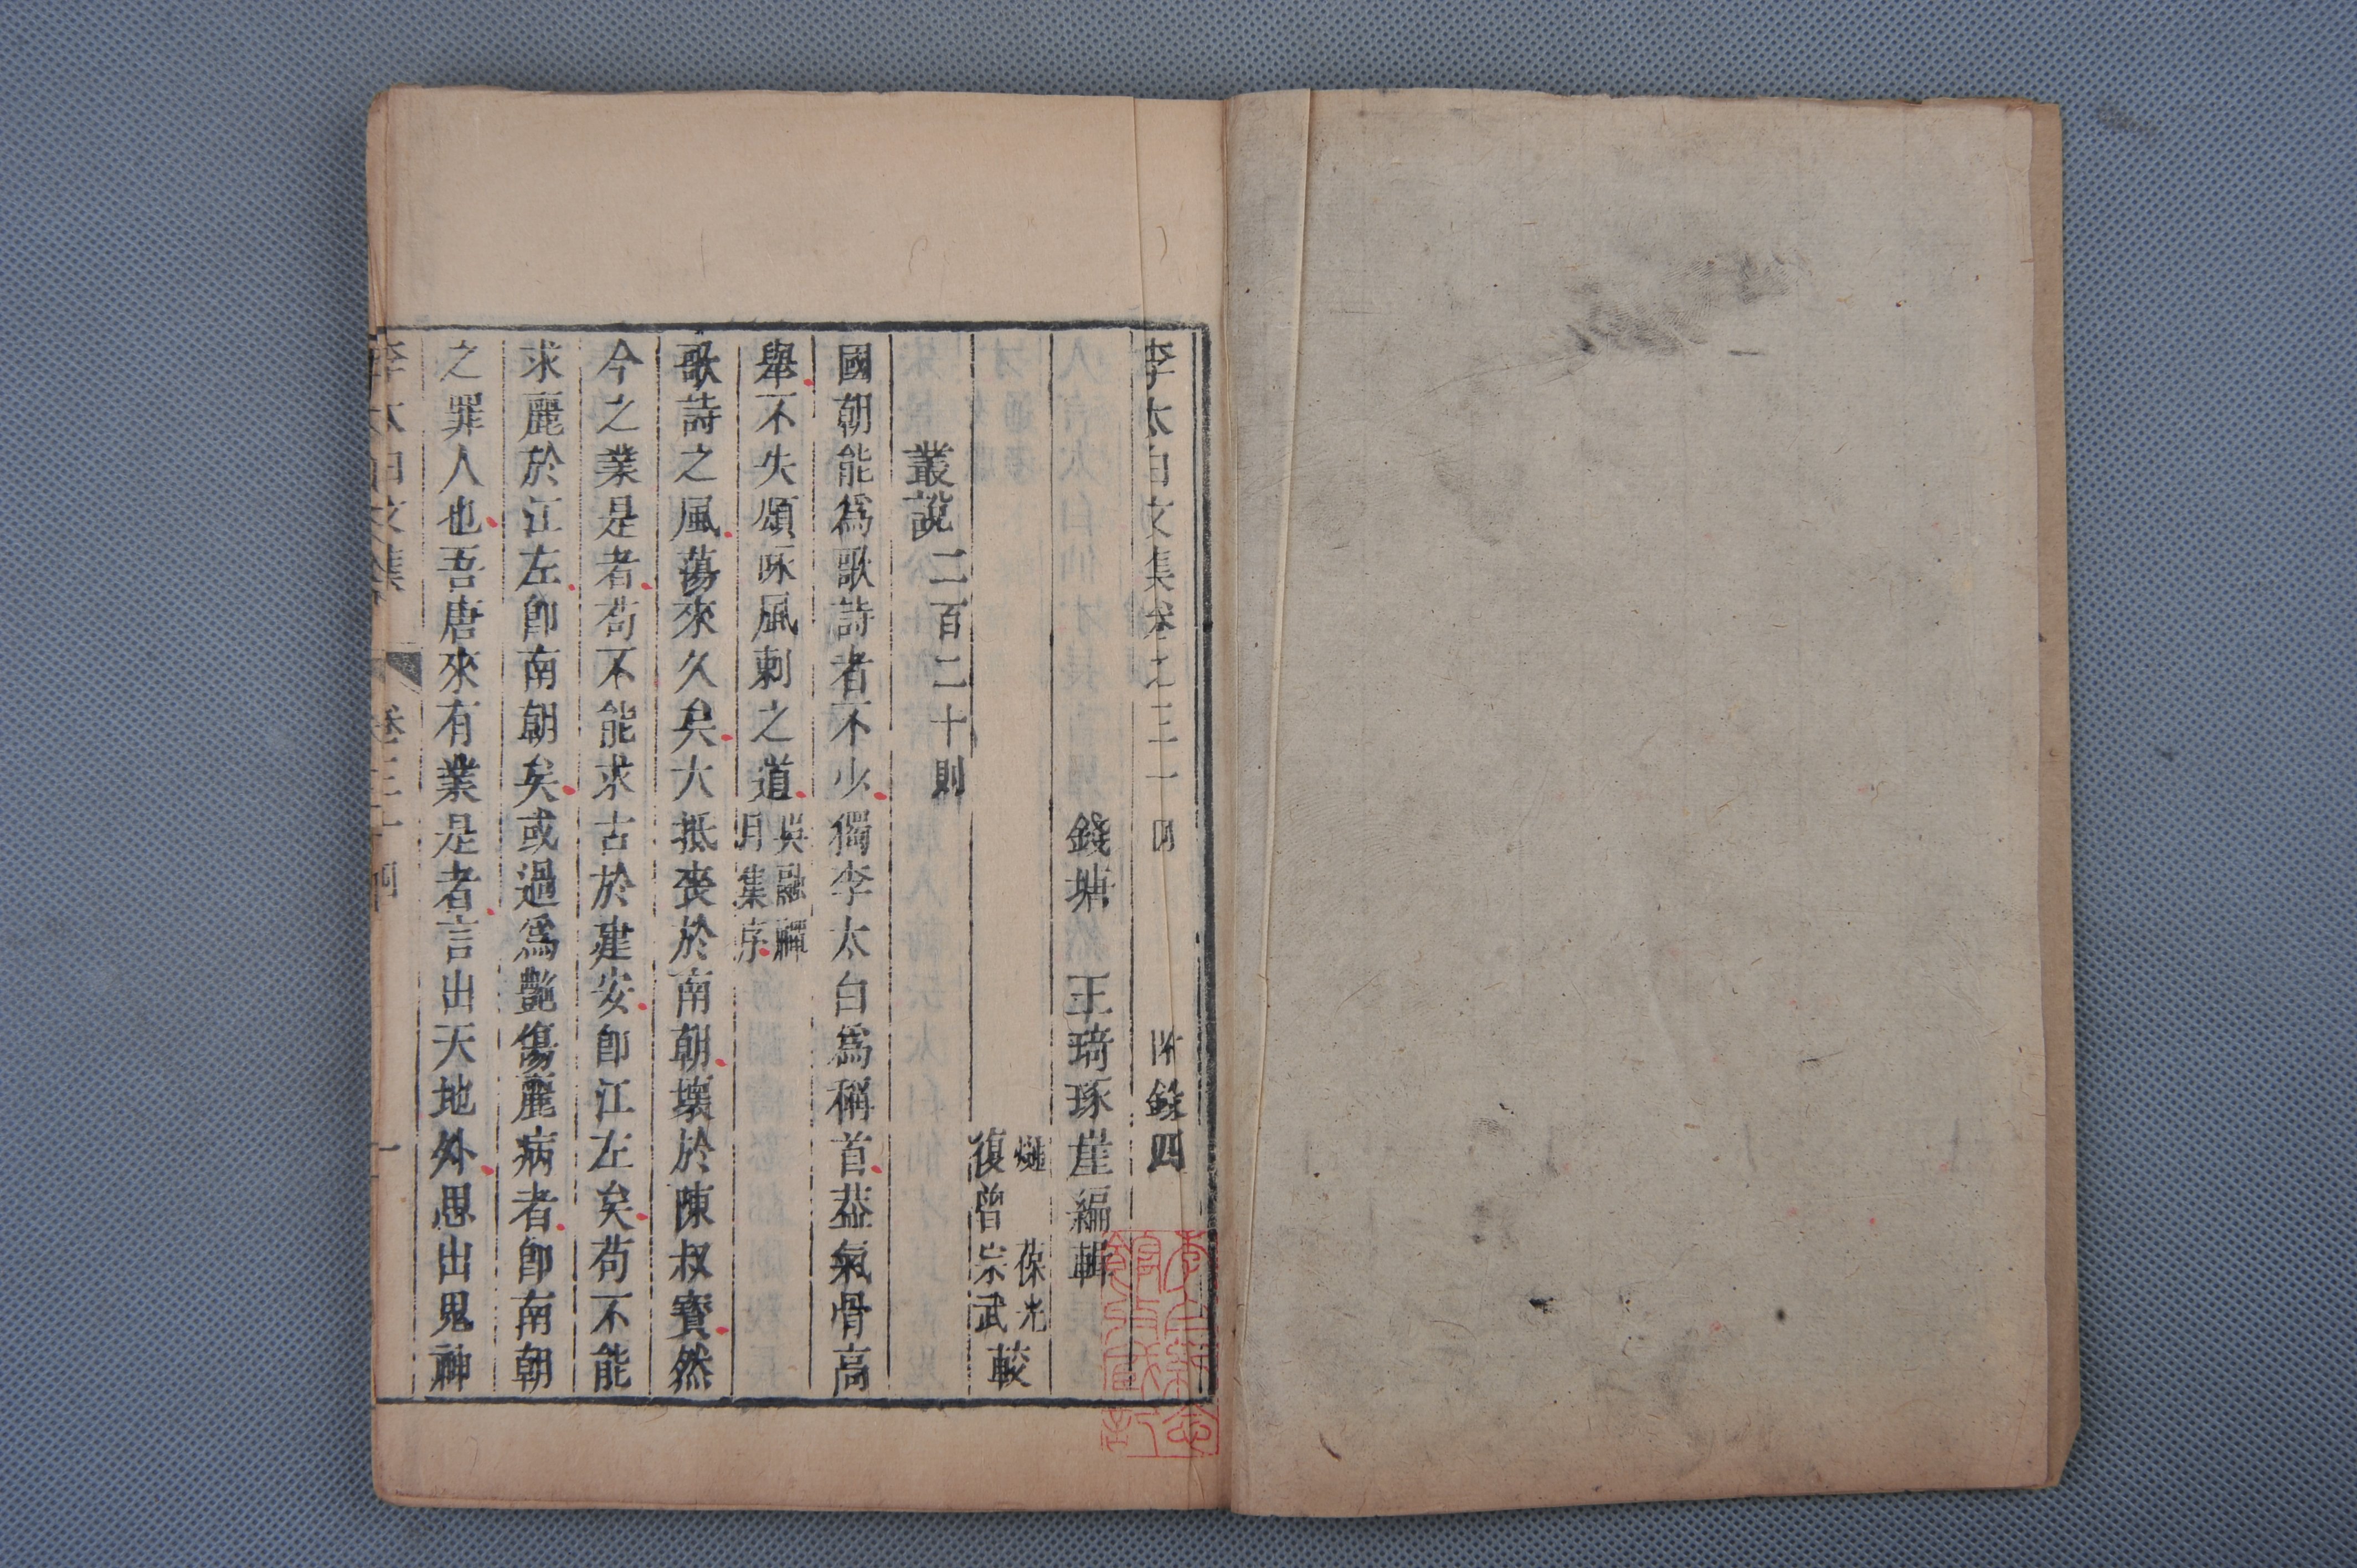 李太白文集卷之三十四 附錄四
錢塘 王琦琢崖編輯
葆光
復曾宗武較
叢說二百二十則
國朝能爲歌詩者不少獨李太白爲稱首葢氣骨高
舉不失頌咏風刺之道吳融禪月集序
歌詩之風蕩來久矣大抵喪於南朝壞於陳叔寶然
今之業是者苟不能求古於建安卽江左矣苟不能
求麗於江左卽南朝矣或過爲艷傷麗病者卽南朝
之罪人也吾唐來有業是者言出天地外思出鬼神
李太白文集 卷三十四 一